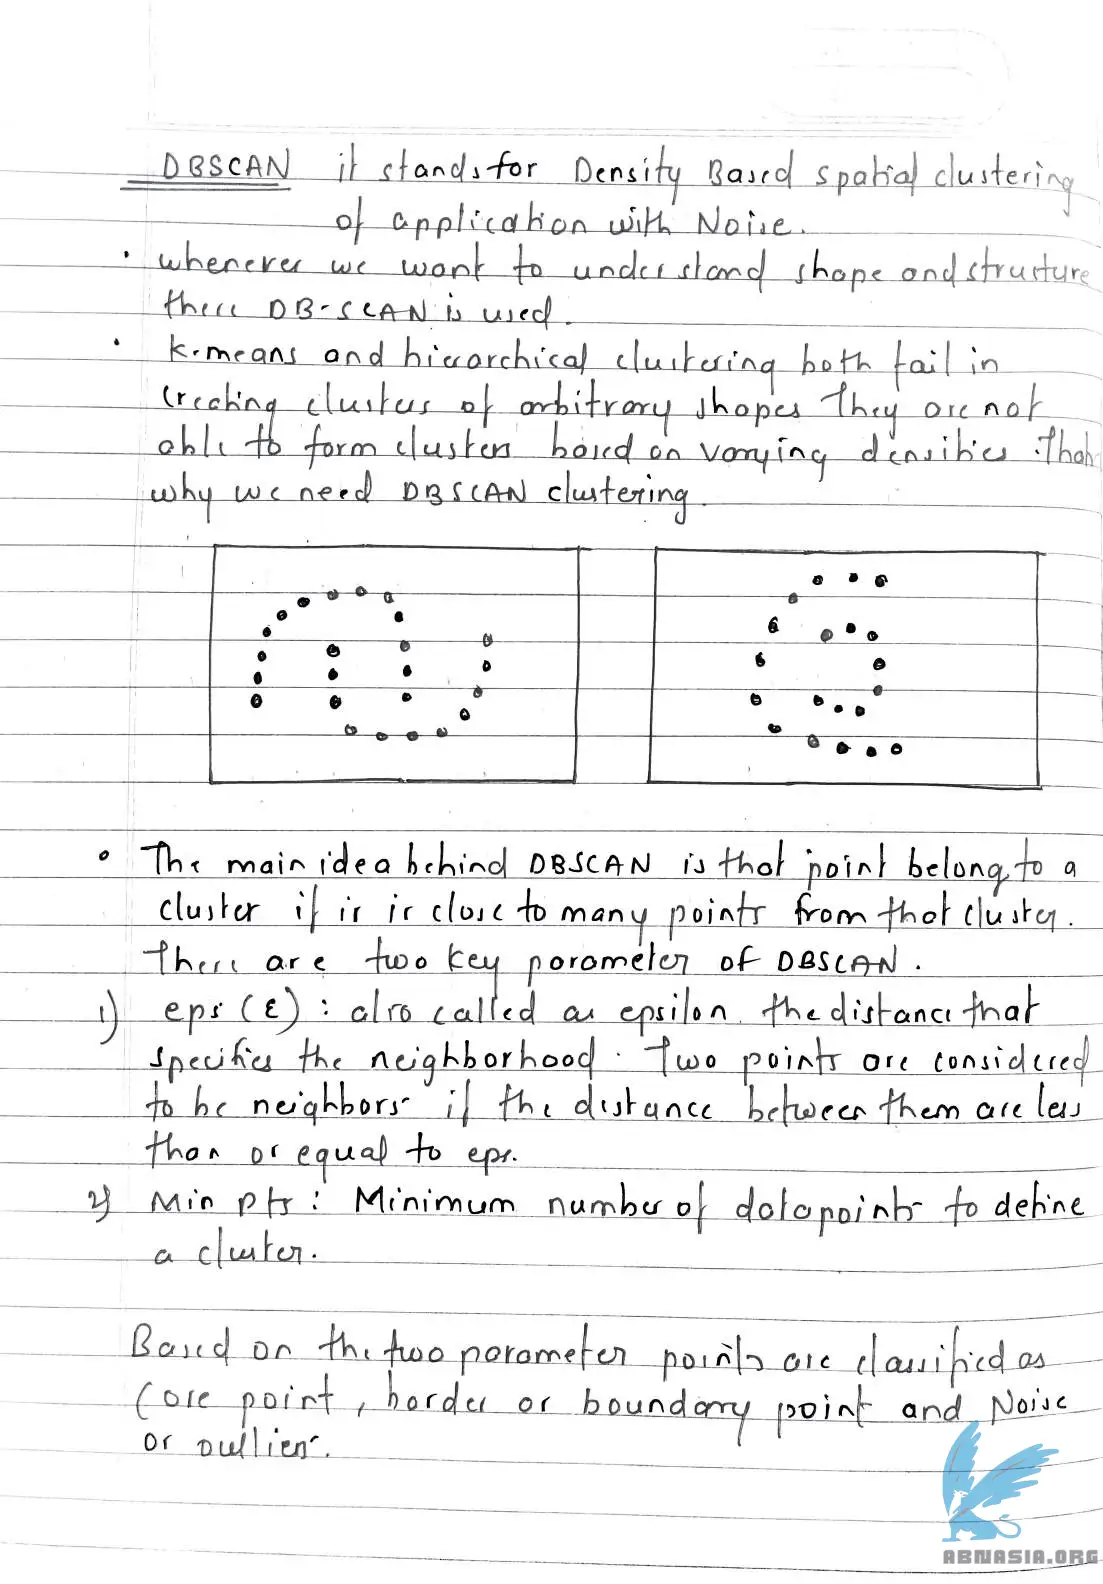 DBSCAN it stands for Density Based spatial clustering
of application with Noise.
• whenever we want to understand shape and structure
there DB-SCAN is used.
• k-means and hierarchical clustering both fail in
creating clusters of arbitrary shapes They are not
able to form clusters based on varying densities. That
why we need DBSCAN clustering.
• The main idea behind DBSCAN is that point belong to a
cluster if it is close to many points from that cluster.
There are two key parameter of DBSCAN.
1) eps (ε) : also called as epsilon. the distance that
specifies the neighborhood. Two points are considered
to be neighbors if the distance between them are less
than or equal to eps.
2) Min pts : Minimum number of datapoints to define
a cluster.
Based on the two parameter points are classified as
Core point, border or boundary point and Noise
or outlier.
ABNASIA.ORG